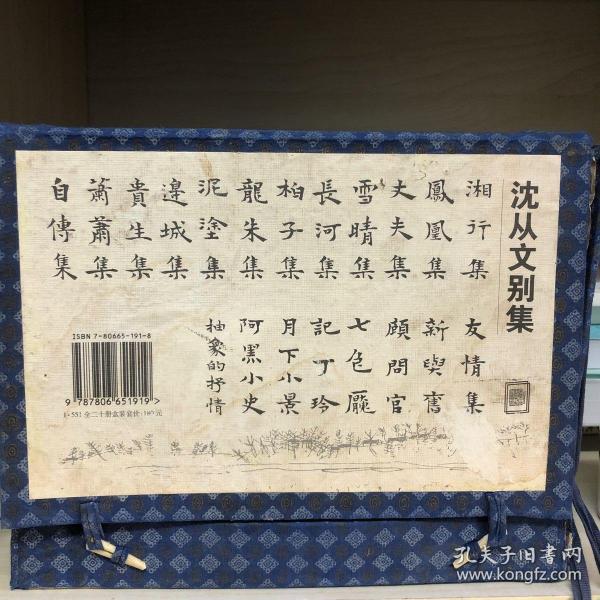 沈从文别集
湘行集
鳳凰集
丈夫集
雪晴集
長河集
柏子集
龍朱集
泥塗集
邊城集
貴生集
蕭蕭集
自傳集
友情集
新與舊
顧問官
七色魘
記丁玲
月下小景
阿黑小史
抽象的抒情
ISBN 7-80665-191-8
9 787806 651919 >
I·551 全二十册盒装套价:180元
孔夫子旧书网
www.kongfz.com